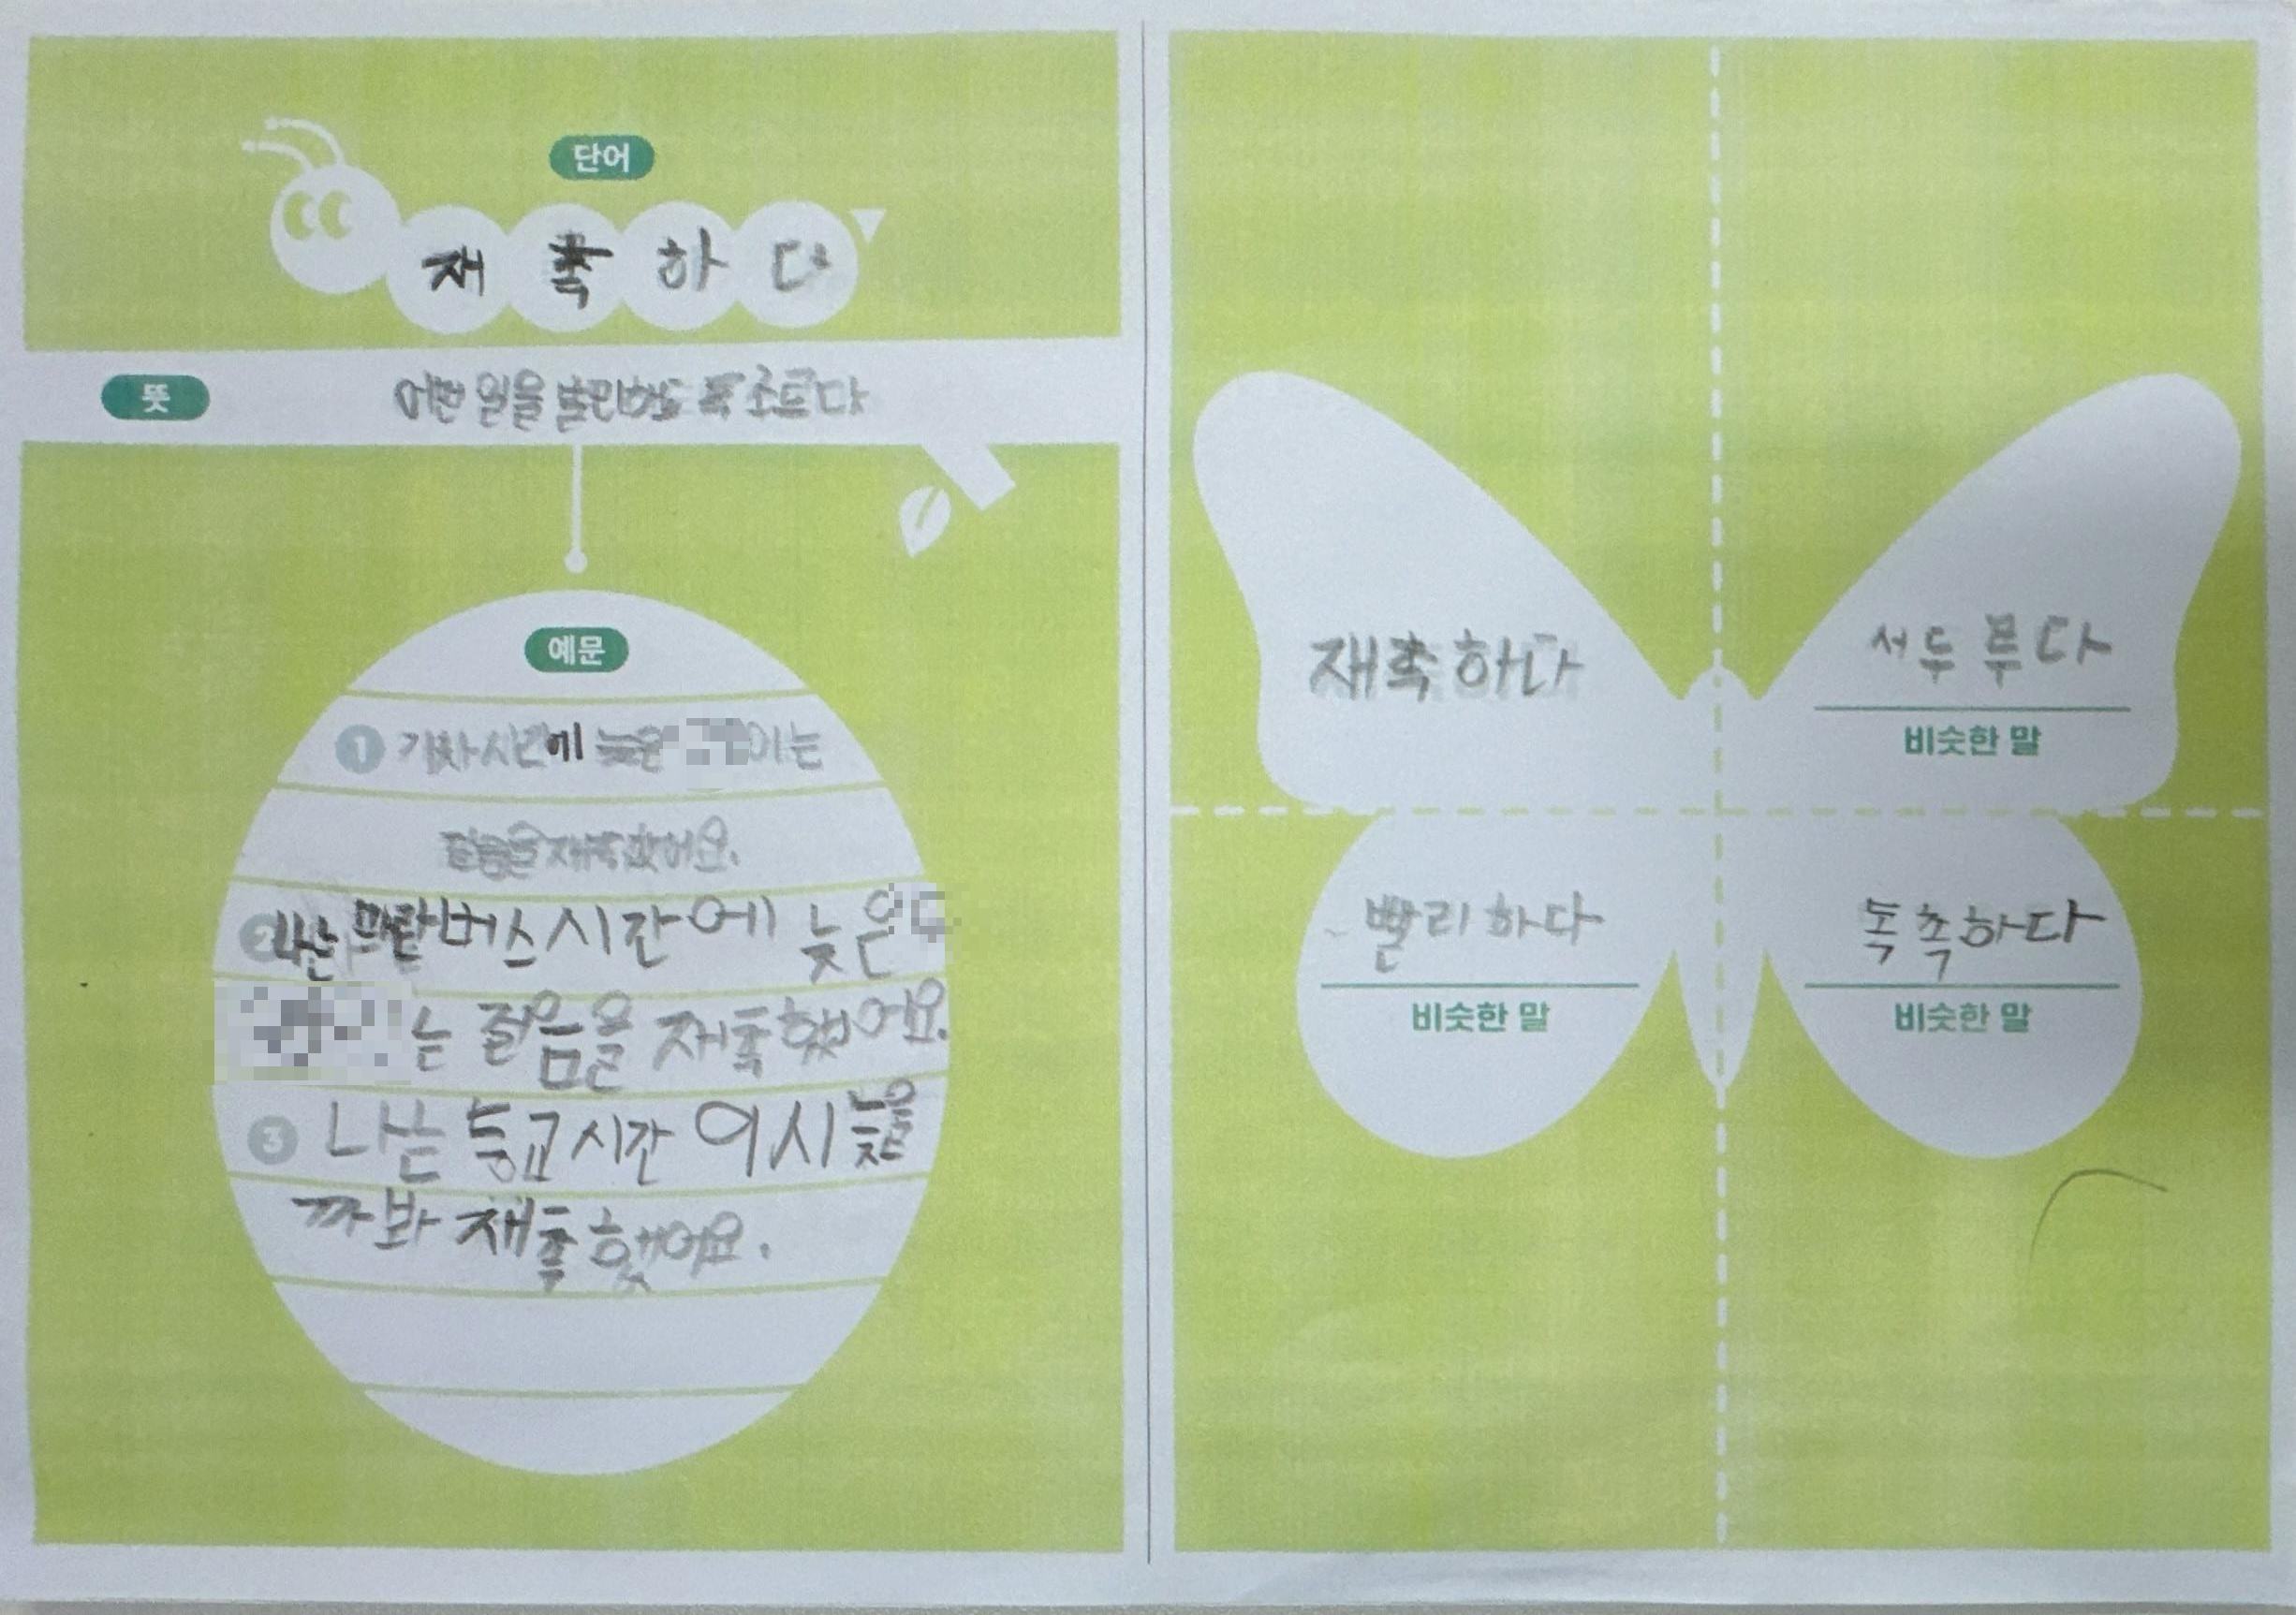 단어
재촉하다
뜻 어떤 일을 빨리하도록 조르다
예문
1 기차시간에 늦은 이는
걸음을 재촉했어요.
2 나는 버스시간에 늦은
는 걸음을 재촉했어요.
3 나는 등교시간 에시 늦을
까봐 재촉했어요.
재촉하다
서두루다
비슷한 말
빨리하다
비슷한 말
독촉하다
비슷한 말